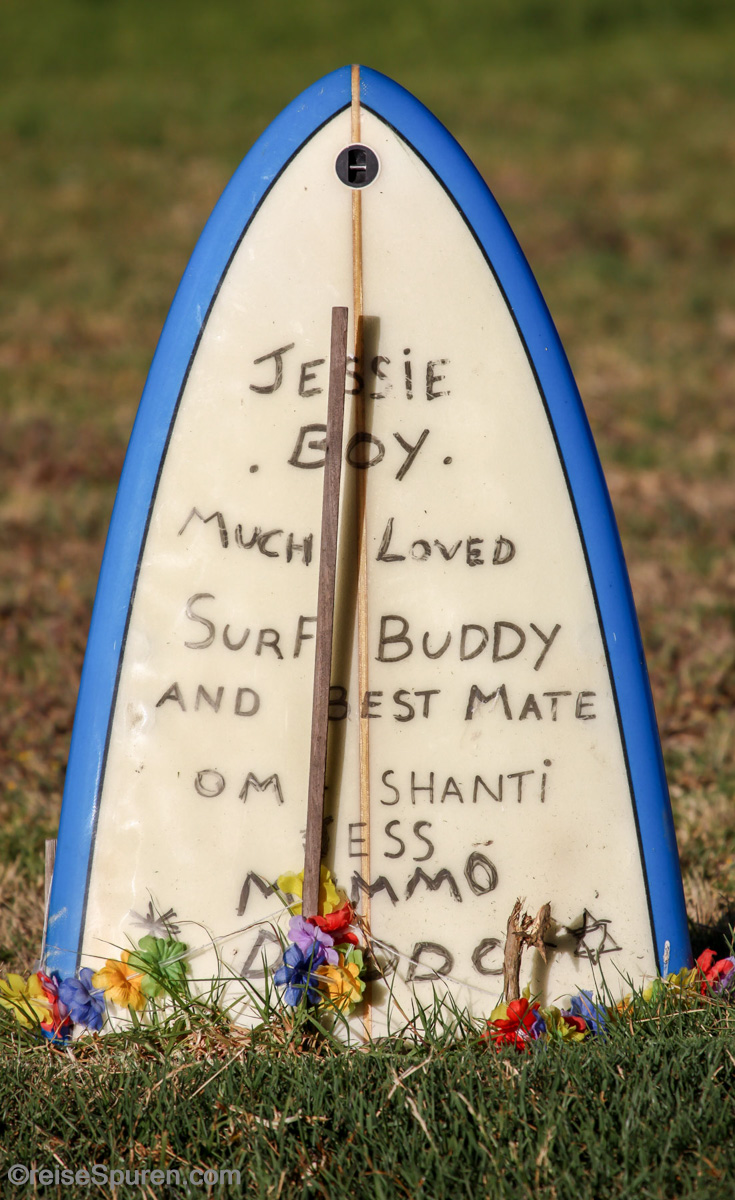 JESSiE
. BOY .
MUCH LOVED
SURF BUDDY
AND BEST MATE
OM SHANTI
ESS
©reiseSpuren.com